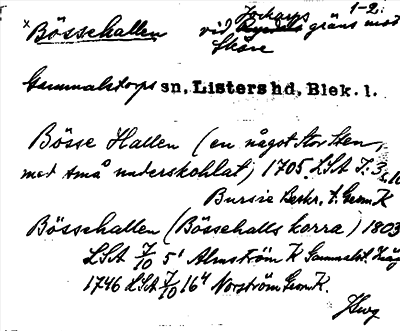 x Bössehallen vid gräns mot 1-2.
Skåne
Gammalstorps sn, Listers hd, Blek. l.
Bösse Hallen (en något stor sten
med små underskohlat) 1705 LSA
Bursie t. Gem. K
Bössehallen (Bössehalls korra) 1803
LSA 7/10 5¹ Almström K Gammalst.
1746 LSA 7/10 16⁴ Norström Gem K.